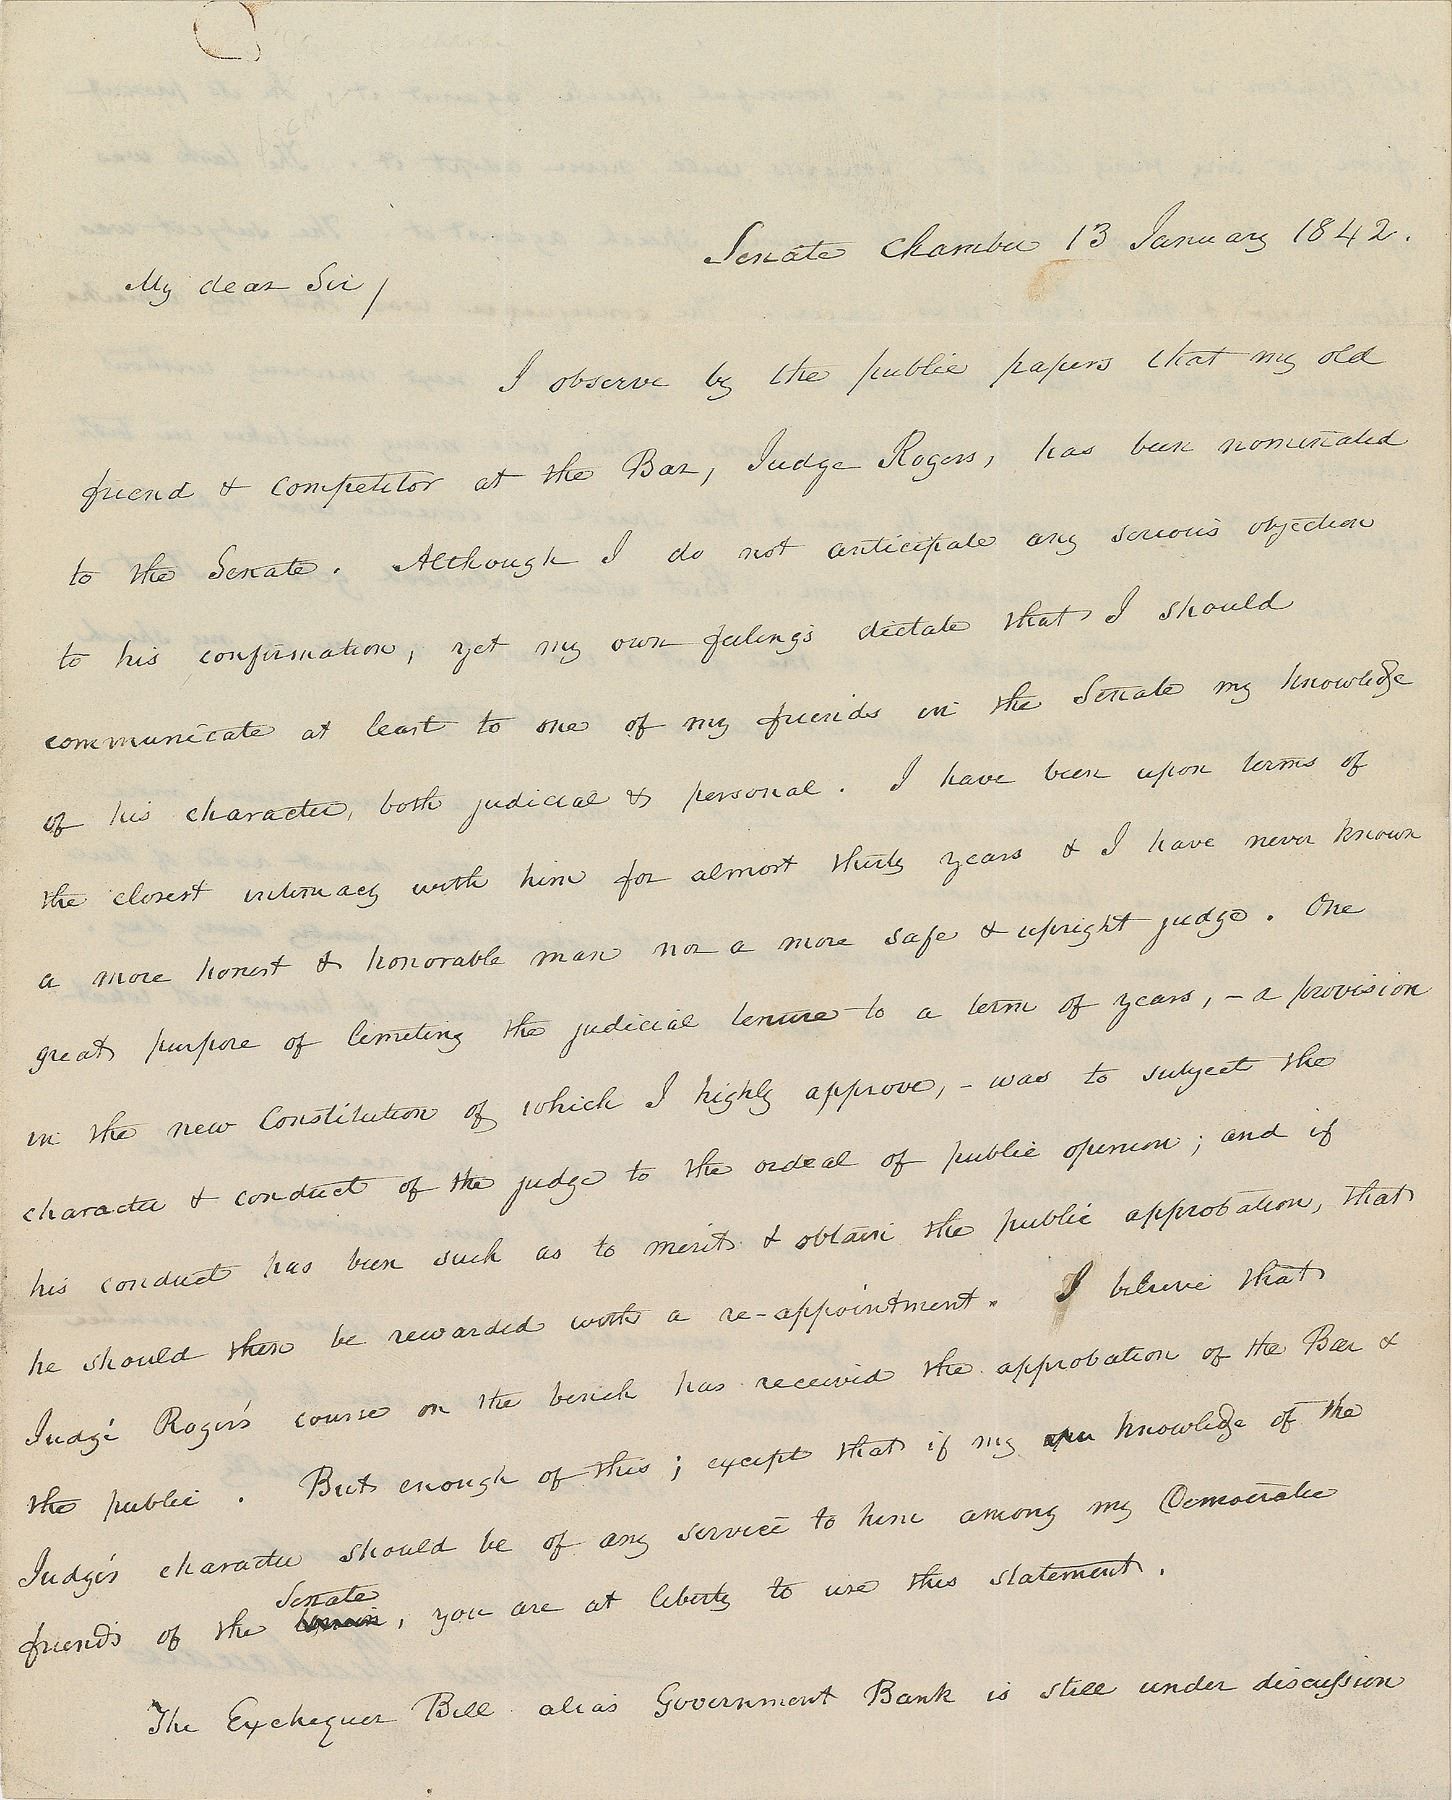 Senate Chamber 13 January 1842.
My dear Sir/
I observe by the public papers that my old
friend & competitor at the Bar, Judge Rogers, has been nominated
to the Senate. Although I do not anticipate any serious objection
to his confirmation, yet my own feelings dictate that I should
communicate at least to one of my friends in the Senate my knowledge
of his character, both judicial & personal. I have been upon terms of
the closest intimacy with him for almost thirty years & I have never known
a more honest & honorable man nor a more safe & upright judge. One
great purpose of limiting the judicial tenure to a term of years, – a provision
in the new Constitution of which I highly approve, – was to subject the
character & conduct of the judge to the ordeal of public opinion; and if
his conduct has been such as to merit & obtain the public approbation, that
he should then be rewarded with a re-appointment. I believe that
Judge Roger's course on the bench has received the approbation of the Bar &
the public. But enough of this; except that if my knowledge of the
Judge's character should be of any service to him among my Democratic
friends of the Senate, you are at liberty to use this statement.
The Exchequer Bill alias Government Bank is still under discussion